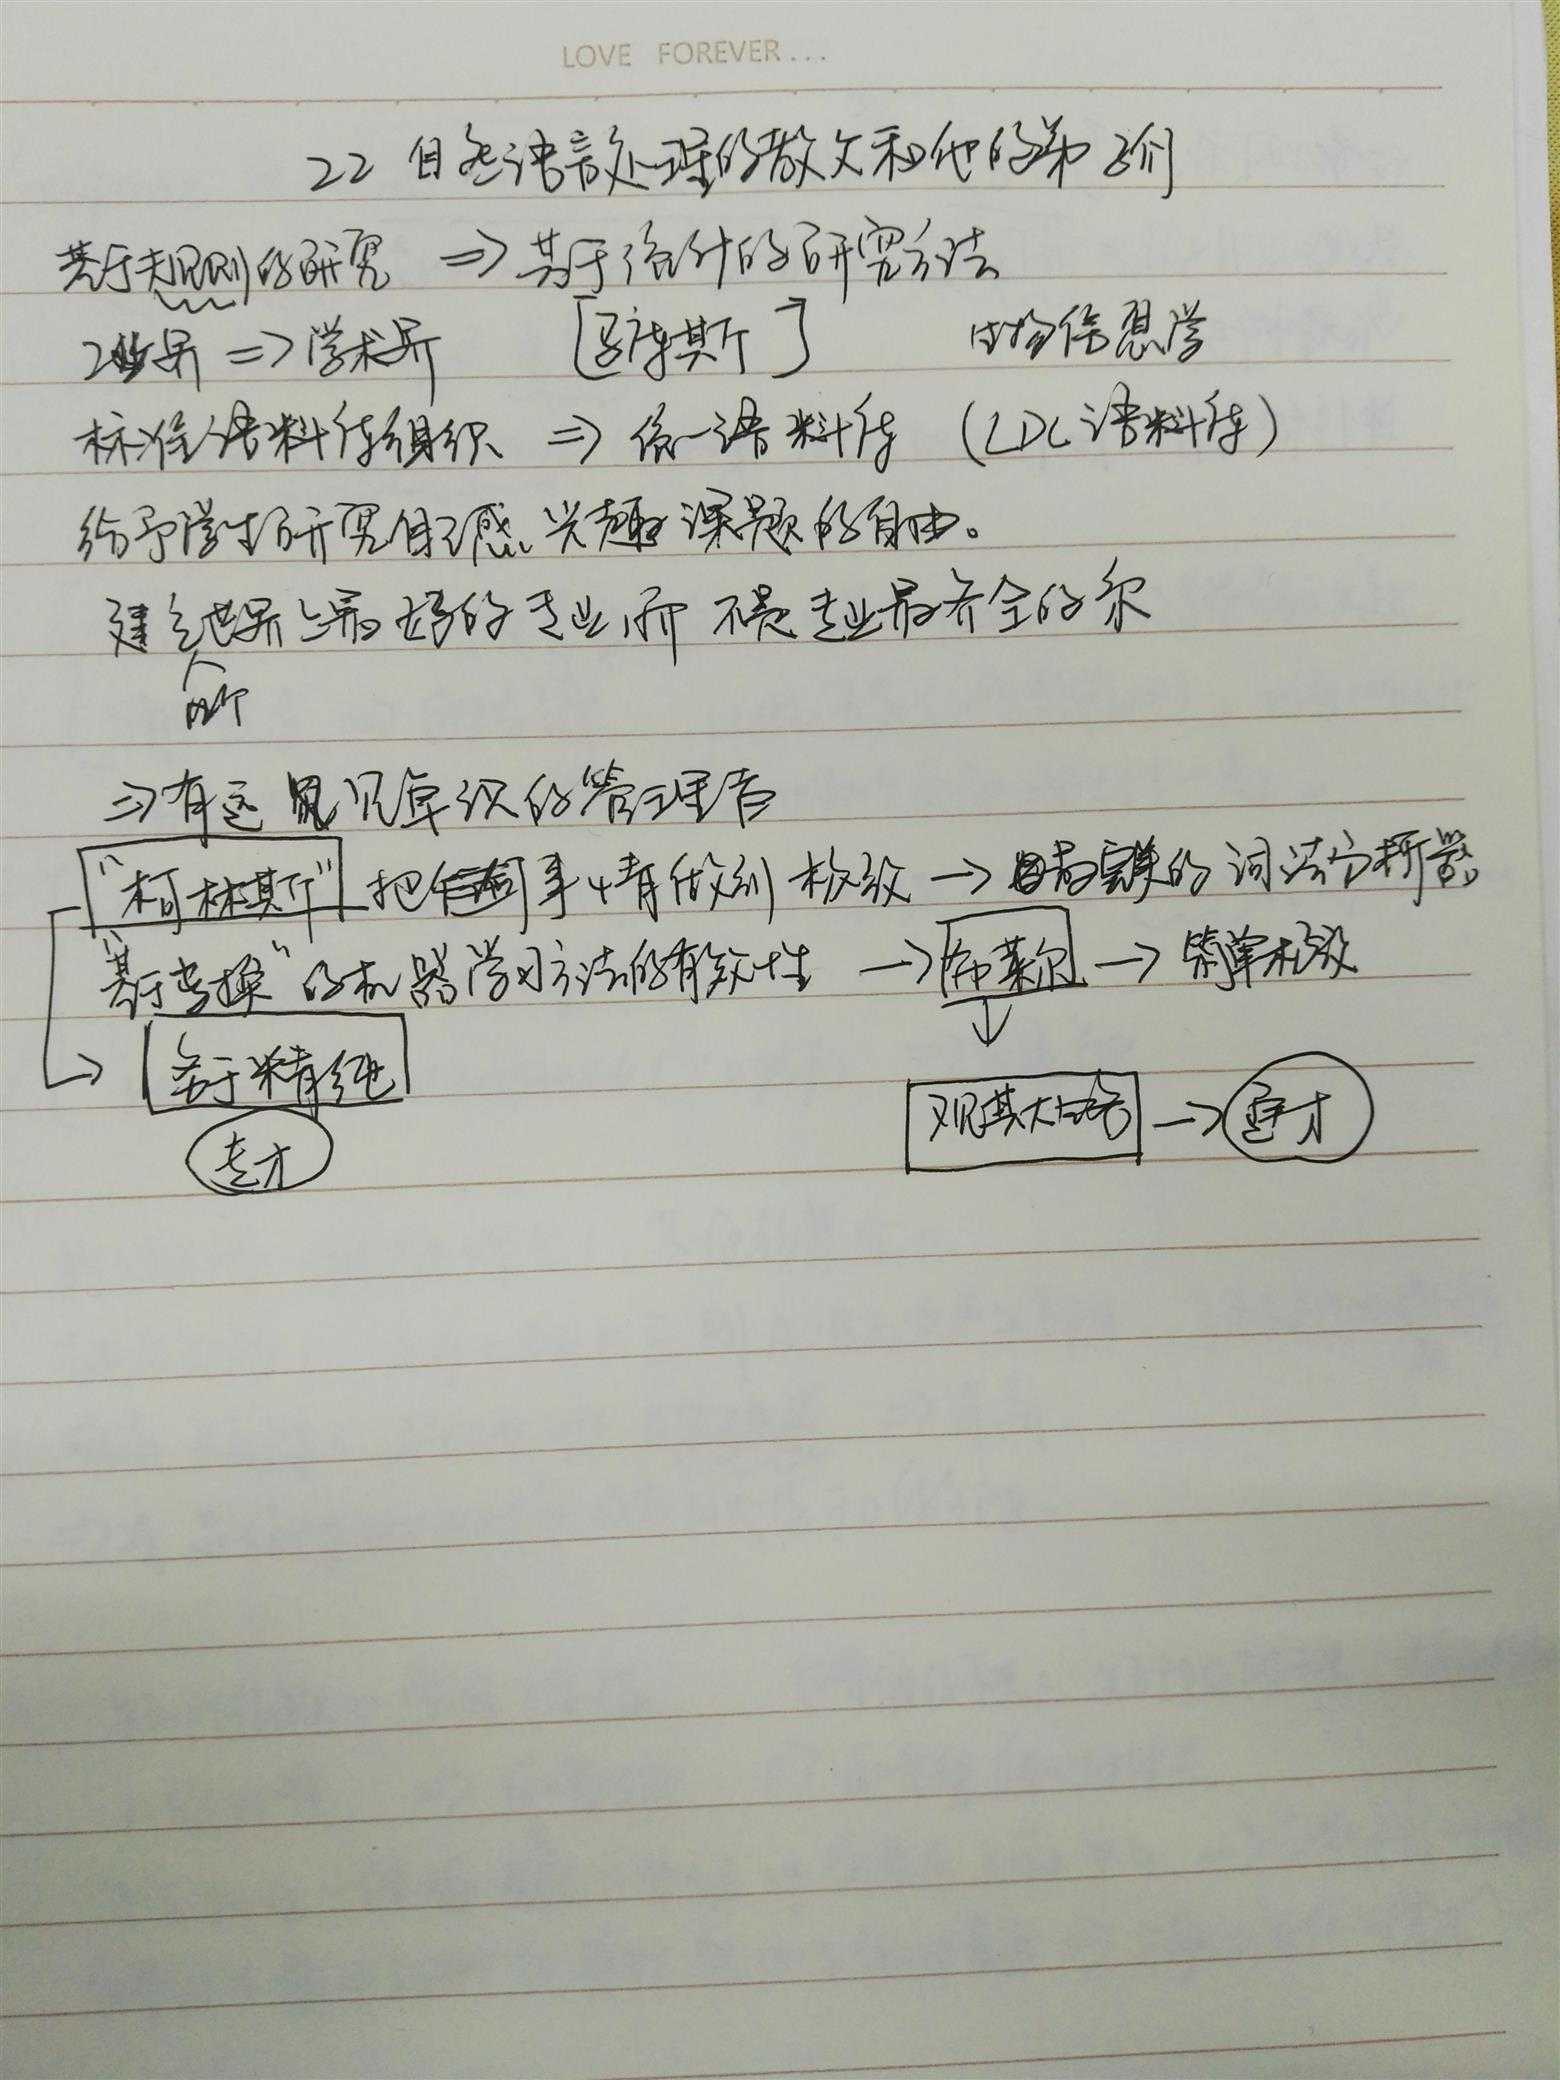 LOVE FOREVER...
22 自然语言处理的教父和他的弟子们
基于规则的研究 => 基于统计的研究方法
工业界 => 学术界 [马库斯] 生物信息学
标准语料库组织 => 统一语料库 (LDC语料库)
给予学生研究自己感兴趣课题的自由。
建立世界上最好的专业,而不是专业最齐全的系
=> 有远见卓识的管理者
"柯林斯" 把任何事情做到极致 → 目前完美的词法分析器
"基于变换"的机器学习方法的有效性 → 布莱尔 → 简单极致
→ 务于精纯
观其大略 → 通才
专才